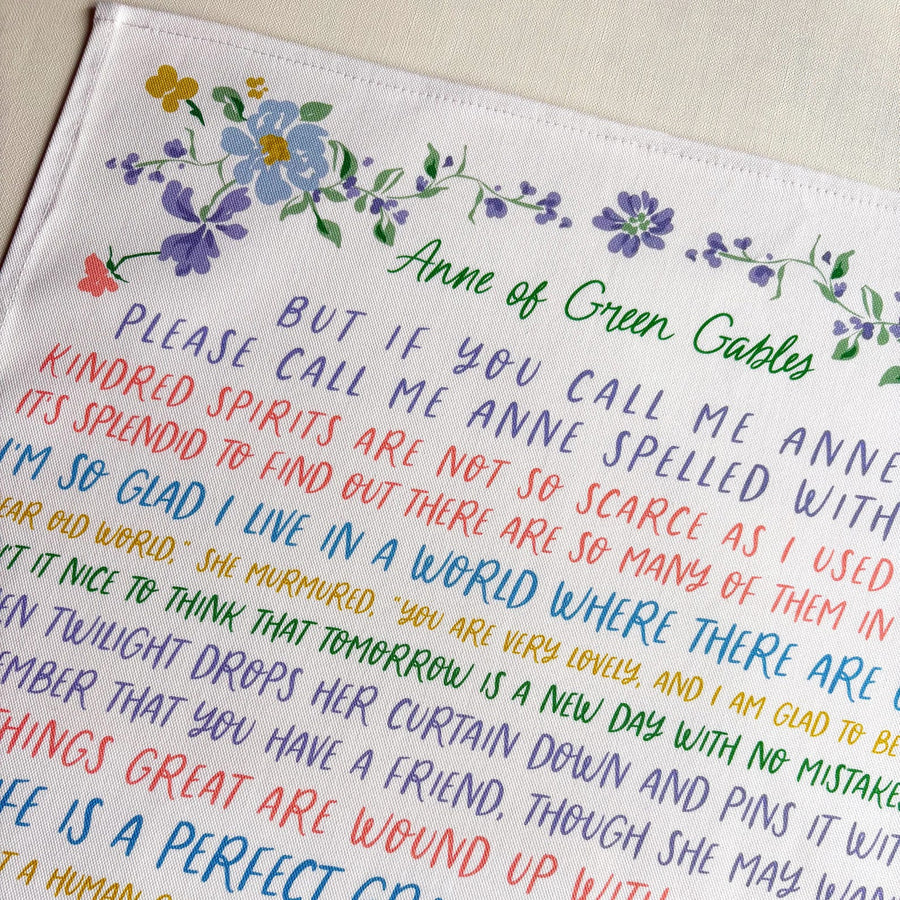 Anne of Green Gables
BUT IF YOU CALL ME ANNE
PLEASE CALL ME ANNE SPELLED WITH
KINDRED SPIRITS ARE NOT SO SCARCE AS I USED
IT'S SPLENDID TO FIND OUT THERE ARE SO MANY OF THEM IN
I'M SO GLAD I LIVE IN A WORLD WHERE THERE ARE
EAR OLD WORLD," SHE MURMURED, "YOU ARE VERY LOVELY, AND I AM GLAD TO BE
'T IT NICE TO THINK THAT TOMORROW IS A NEW DAY WITH NO MISTAKES
EN TWILIGHT DROPS HER CURTAIN DOWN AND PINS IT WIT
EMBER THAT YOU HAVE A FRIEND, THOUGH SHE MAY WAN
THINGS GREAT ARE WOUND UP WITH
FE IS A PERFECT
T A HUMAN